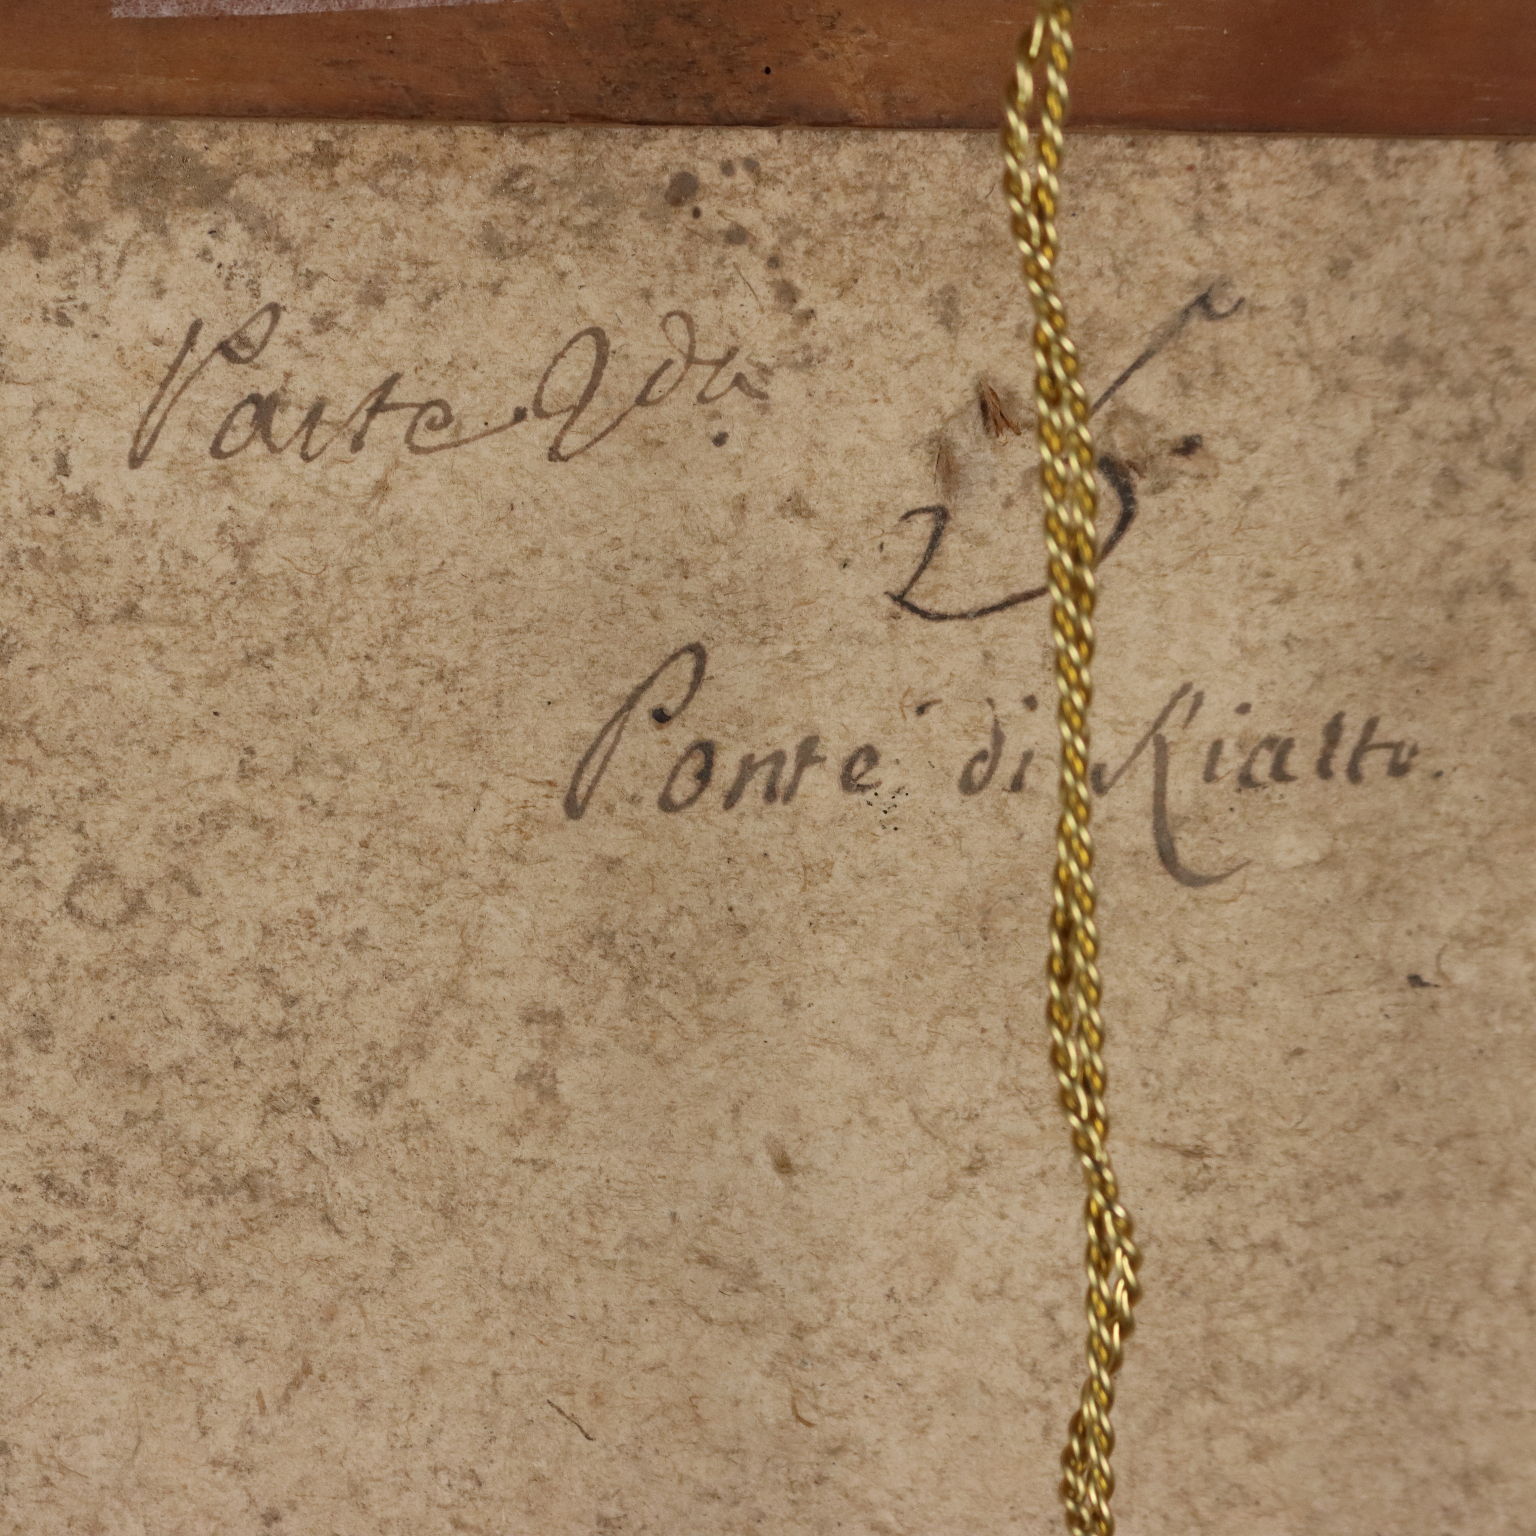 Parte 2da.
25
Ponte di Rialto.